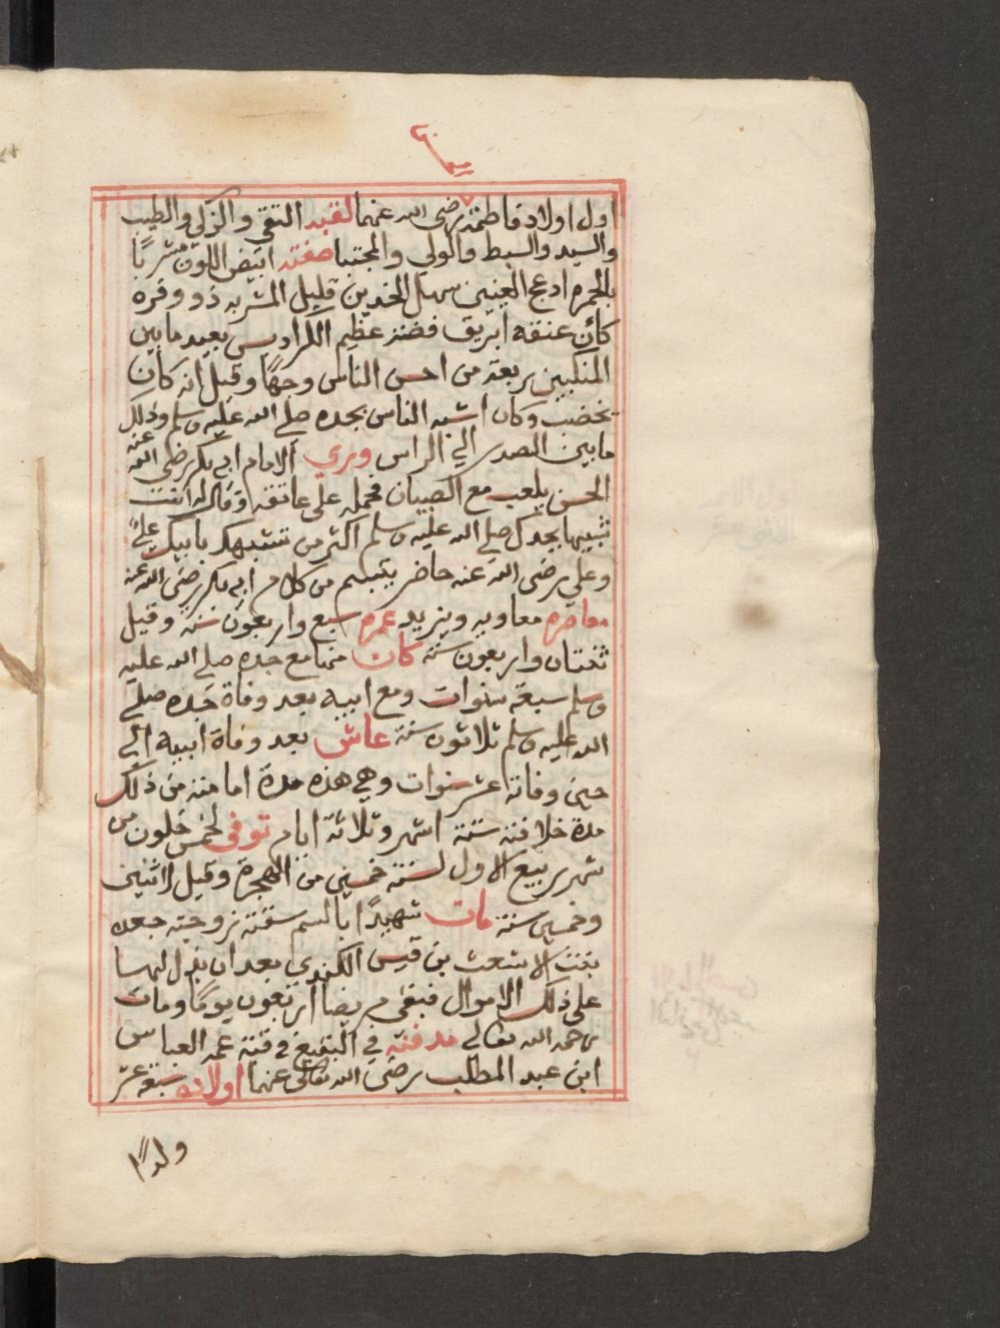 اول اولاد فاطمة رضي الله عنهما لقبه التقي والزكي والطيب
والسيد والسبط والولي والمجتبا صفته ابيض اللون مشربًا
بالحمره ادعج العينين سهل الخدين قليل المشربه ذو وفره
كأن عنقه ابريق فضه عظيم الكراديس بعيد مابين
المنكبين ربعة من احسن الناس وجهًا وقيل انه كان
يخضب وكان اشبه الناس بجده صلى الله عليه وسلم وذلك
مابين الصدر الي الراس وري الامام ابي بكر رضي الله عنه
الحسن يلعب مع الصبيان فحمله على عاتقه وقال له انت
شبيها بجدك صلى الله عليه وسلم اكثر من تشبهك بابيك علي
وعلي رضى الله عنه حاضر يتبسم من كلام ابي بكر رضى الله عنه
معاصره معاويه ويزيد عمره سبع واربعون سنة وقيل
ثنتان واربعون سنة كان منها مع جده صلى الله عليه
وسلم سبعة سنوات ومع ابيه بعد وفاة جده صلى
الله عليه وسلم ثلاثون سنة عاش بعد وفاة ابيه الي
حين وفاته عشر سنوات وهي هذه مدة امامته من ذلك
مدة خلافته ستة اشهر وثلاثة ايام توفى لخمس خلون من
شهر ربيع الاول لسنة خمسين من الهجرة وقيل لاثنين
وخمسين سنة مات شهيدًا بالسم سقته زوجته جعده
بنت الاشعث بن قيس الكندي بعد ان بذل لها
على ذلك الاموال فبقى مريضا اربعون يومًا ومات
رحمه الله تعالى مدفنه في البقيع في قبة عمه العباس
ابن عبد المطلب رضى الله تعالى عنهما اولاده سبعة عشر
ولدًا